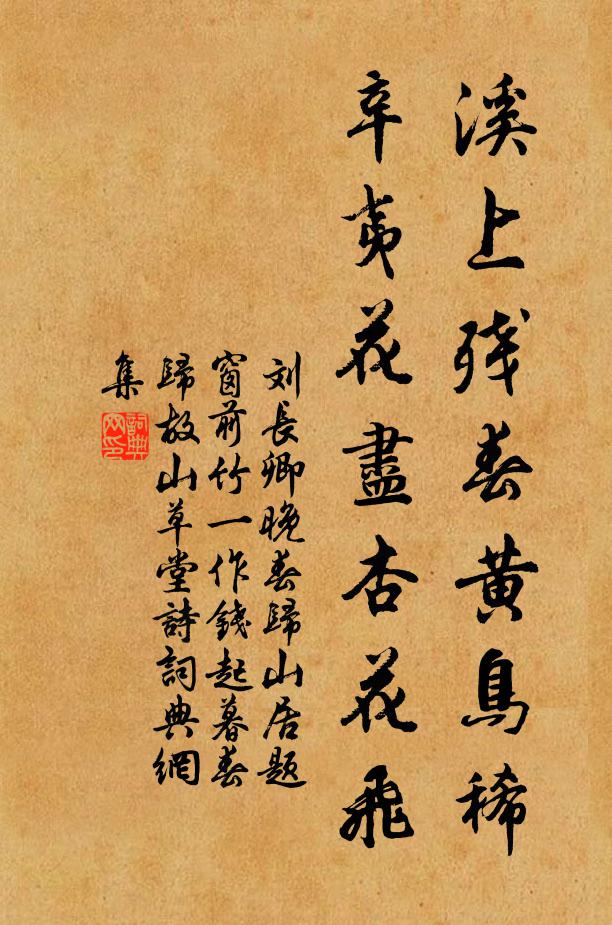 溪上残春黄鳥稀
辛夷花盡杏花飛
刘長卿晚春歸山居题
窗前竹一作錢起暮春
歸故山草堂詩詞典網
集
詞典
网印